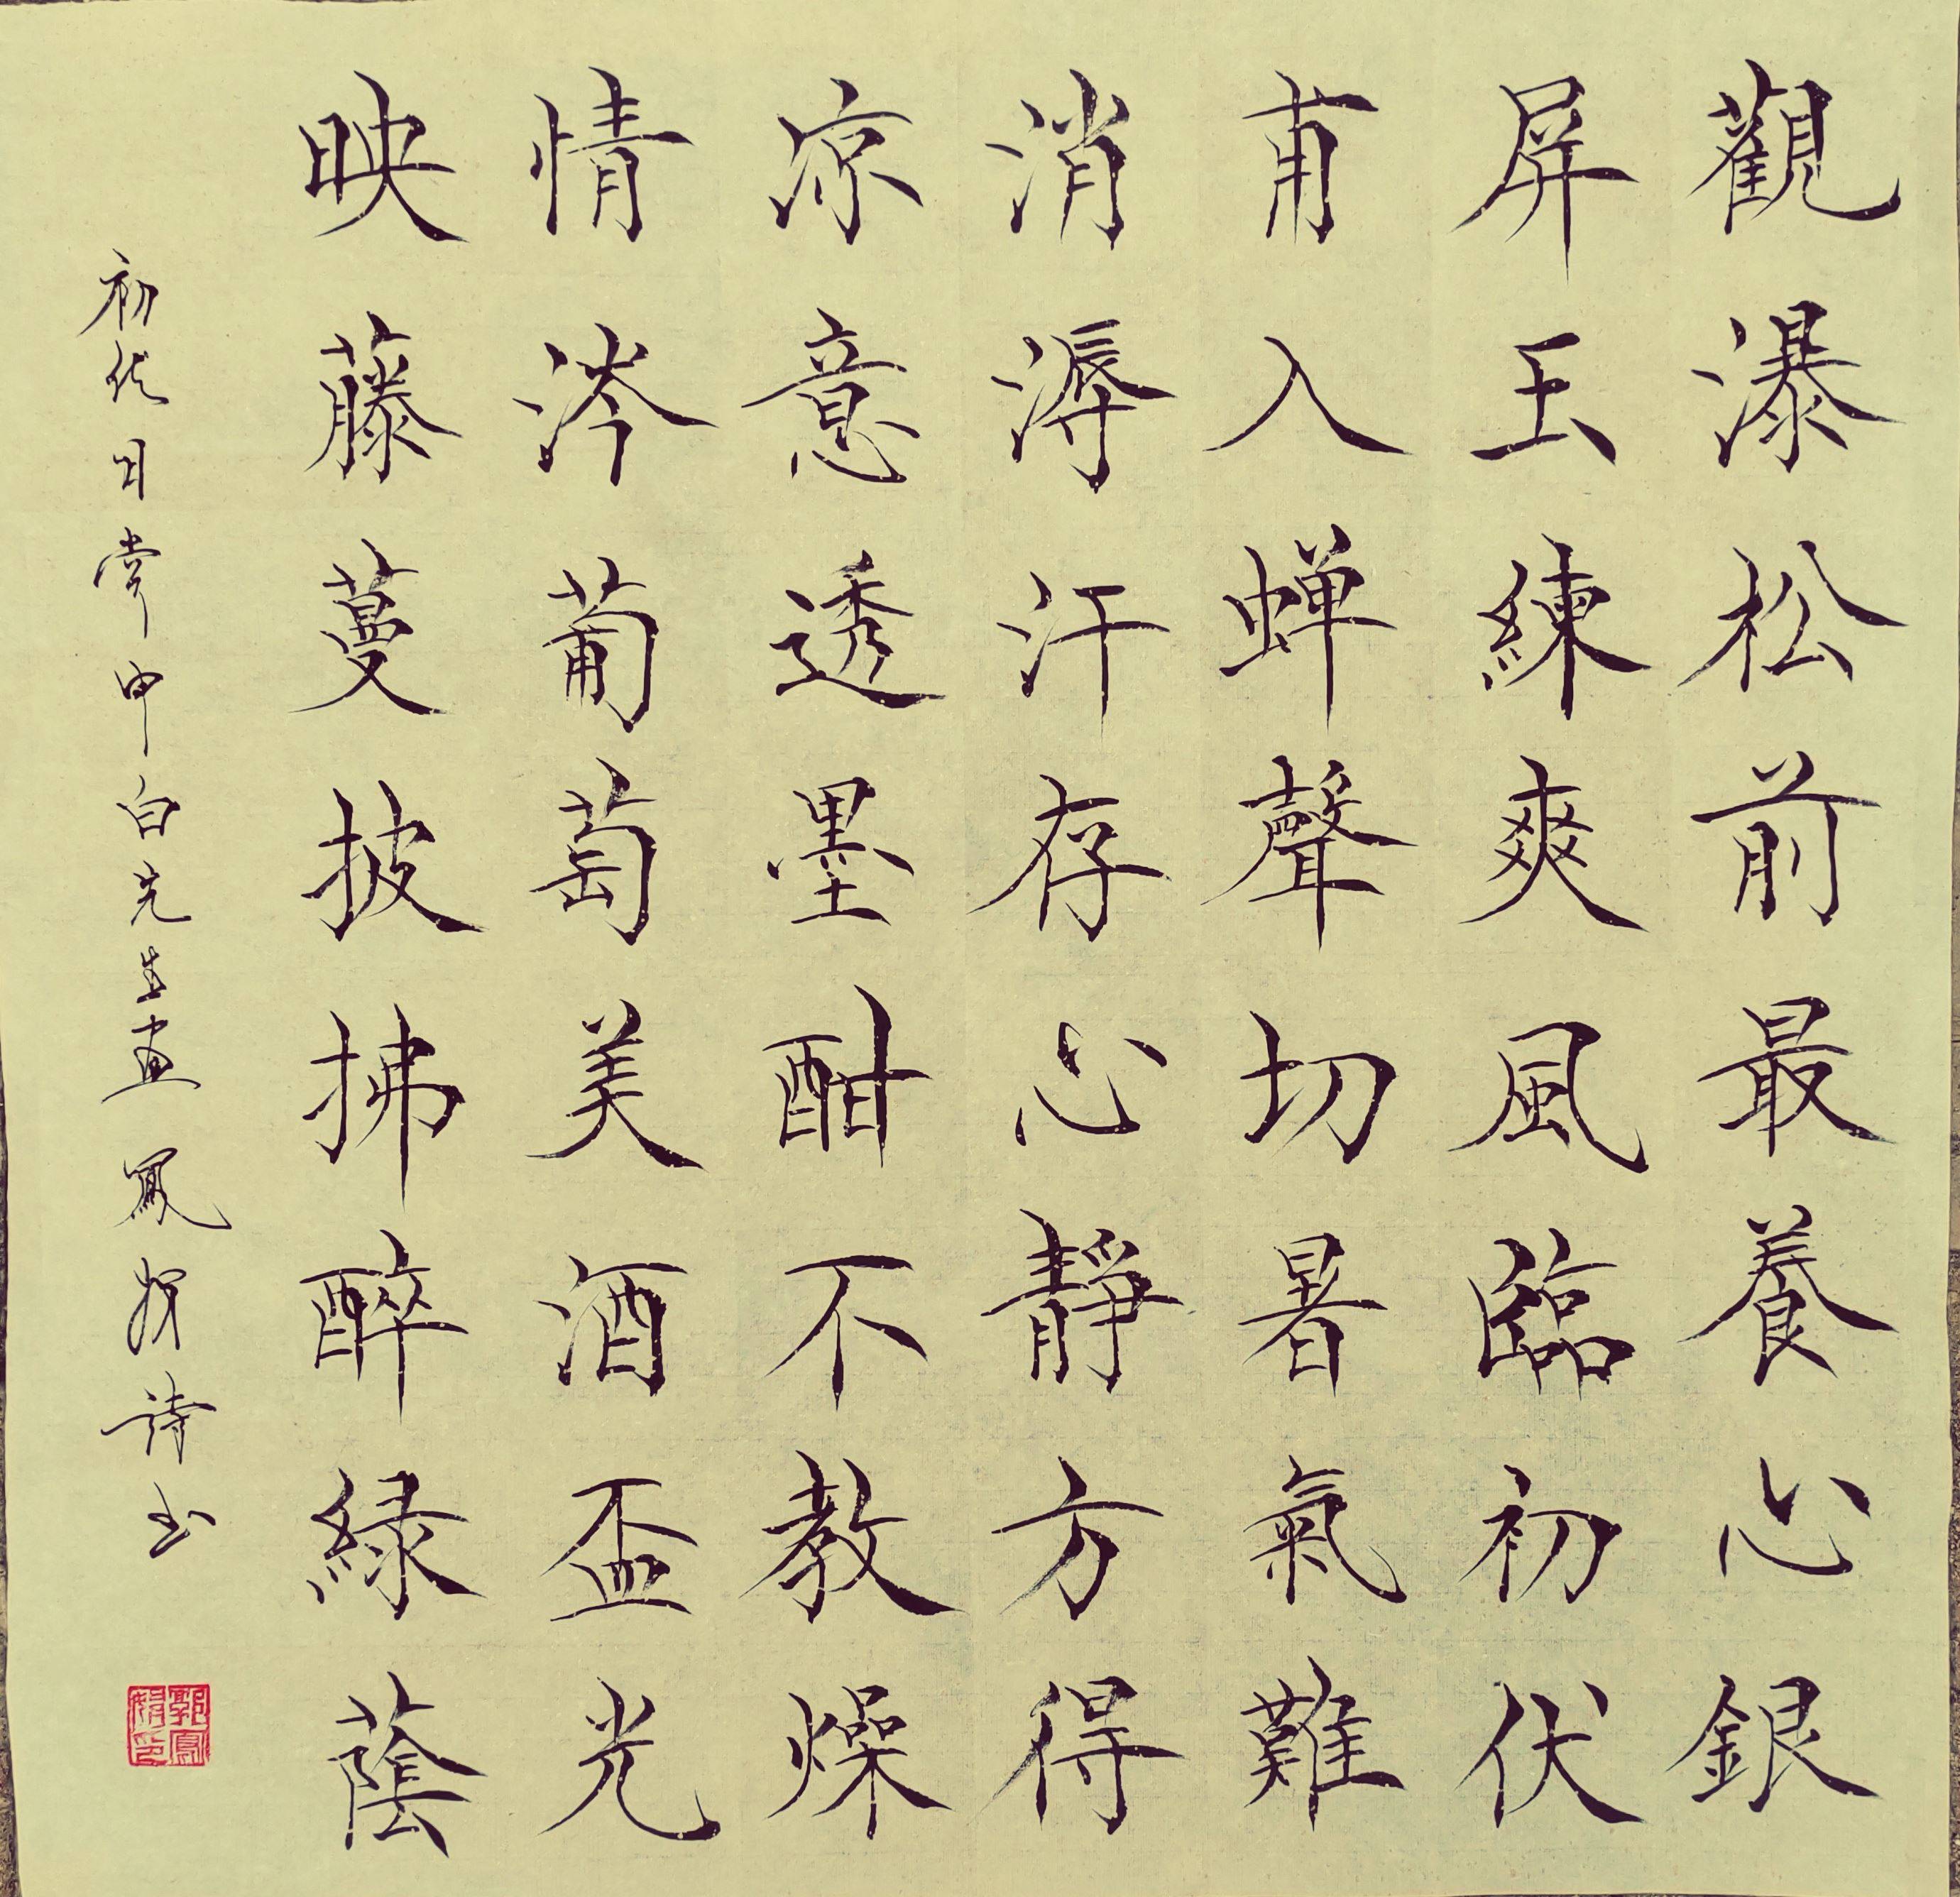 觀瀑松前最養心銀
屏玉練爽風臨初伏
甫入蝉聲切暑氣難
消溽汗存心靜方得
凉意透墨酣不教燥
情涔葡萄美酒盃光
映藤蔓披拂醉緑蔭
初伏日賞申白先生畫鳳娟詩書
郭鳳娟印